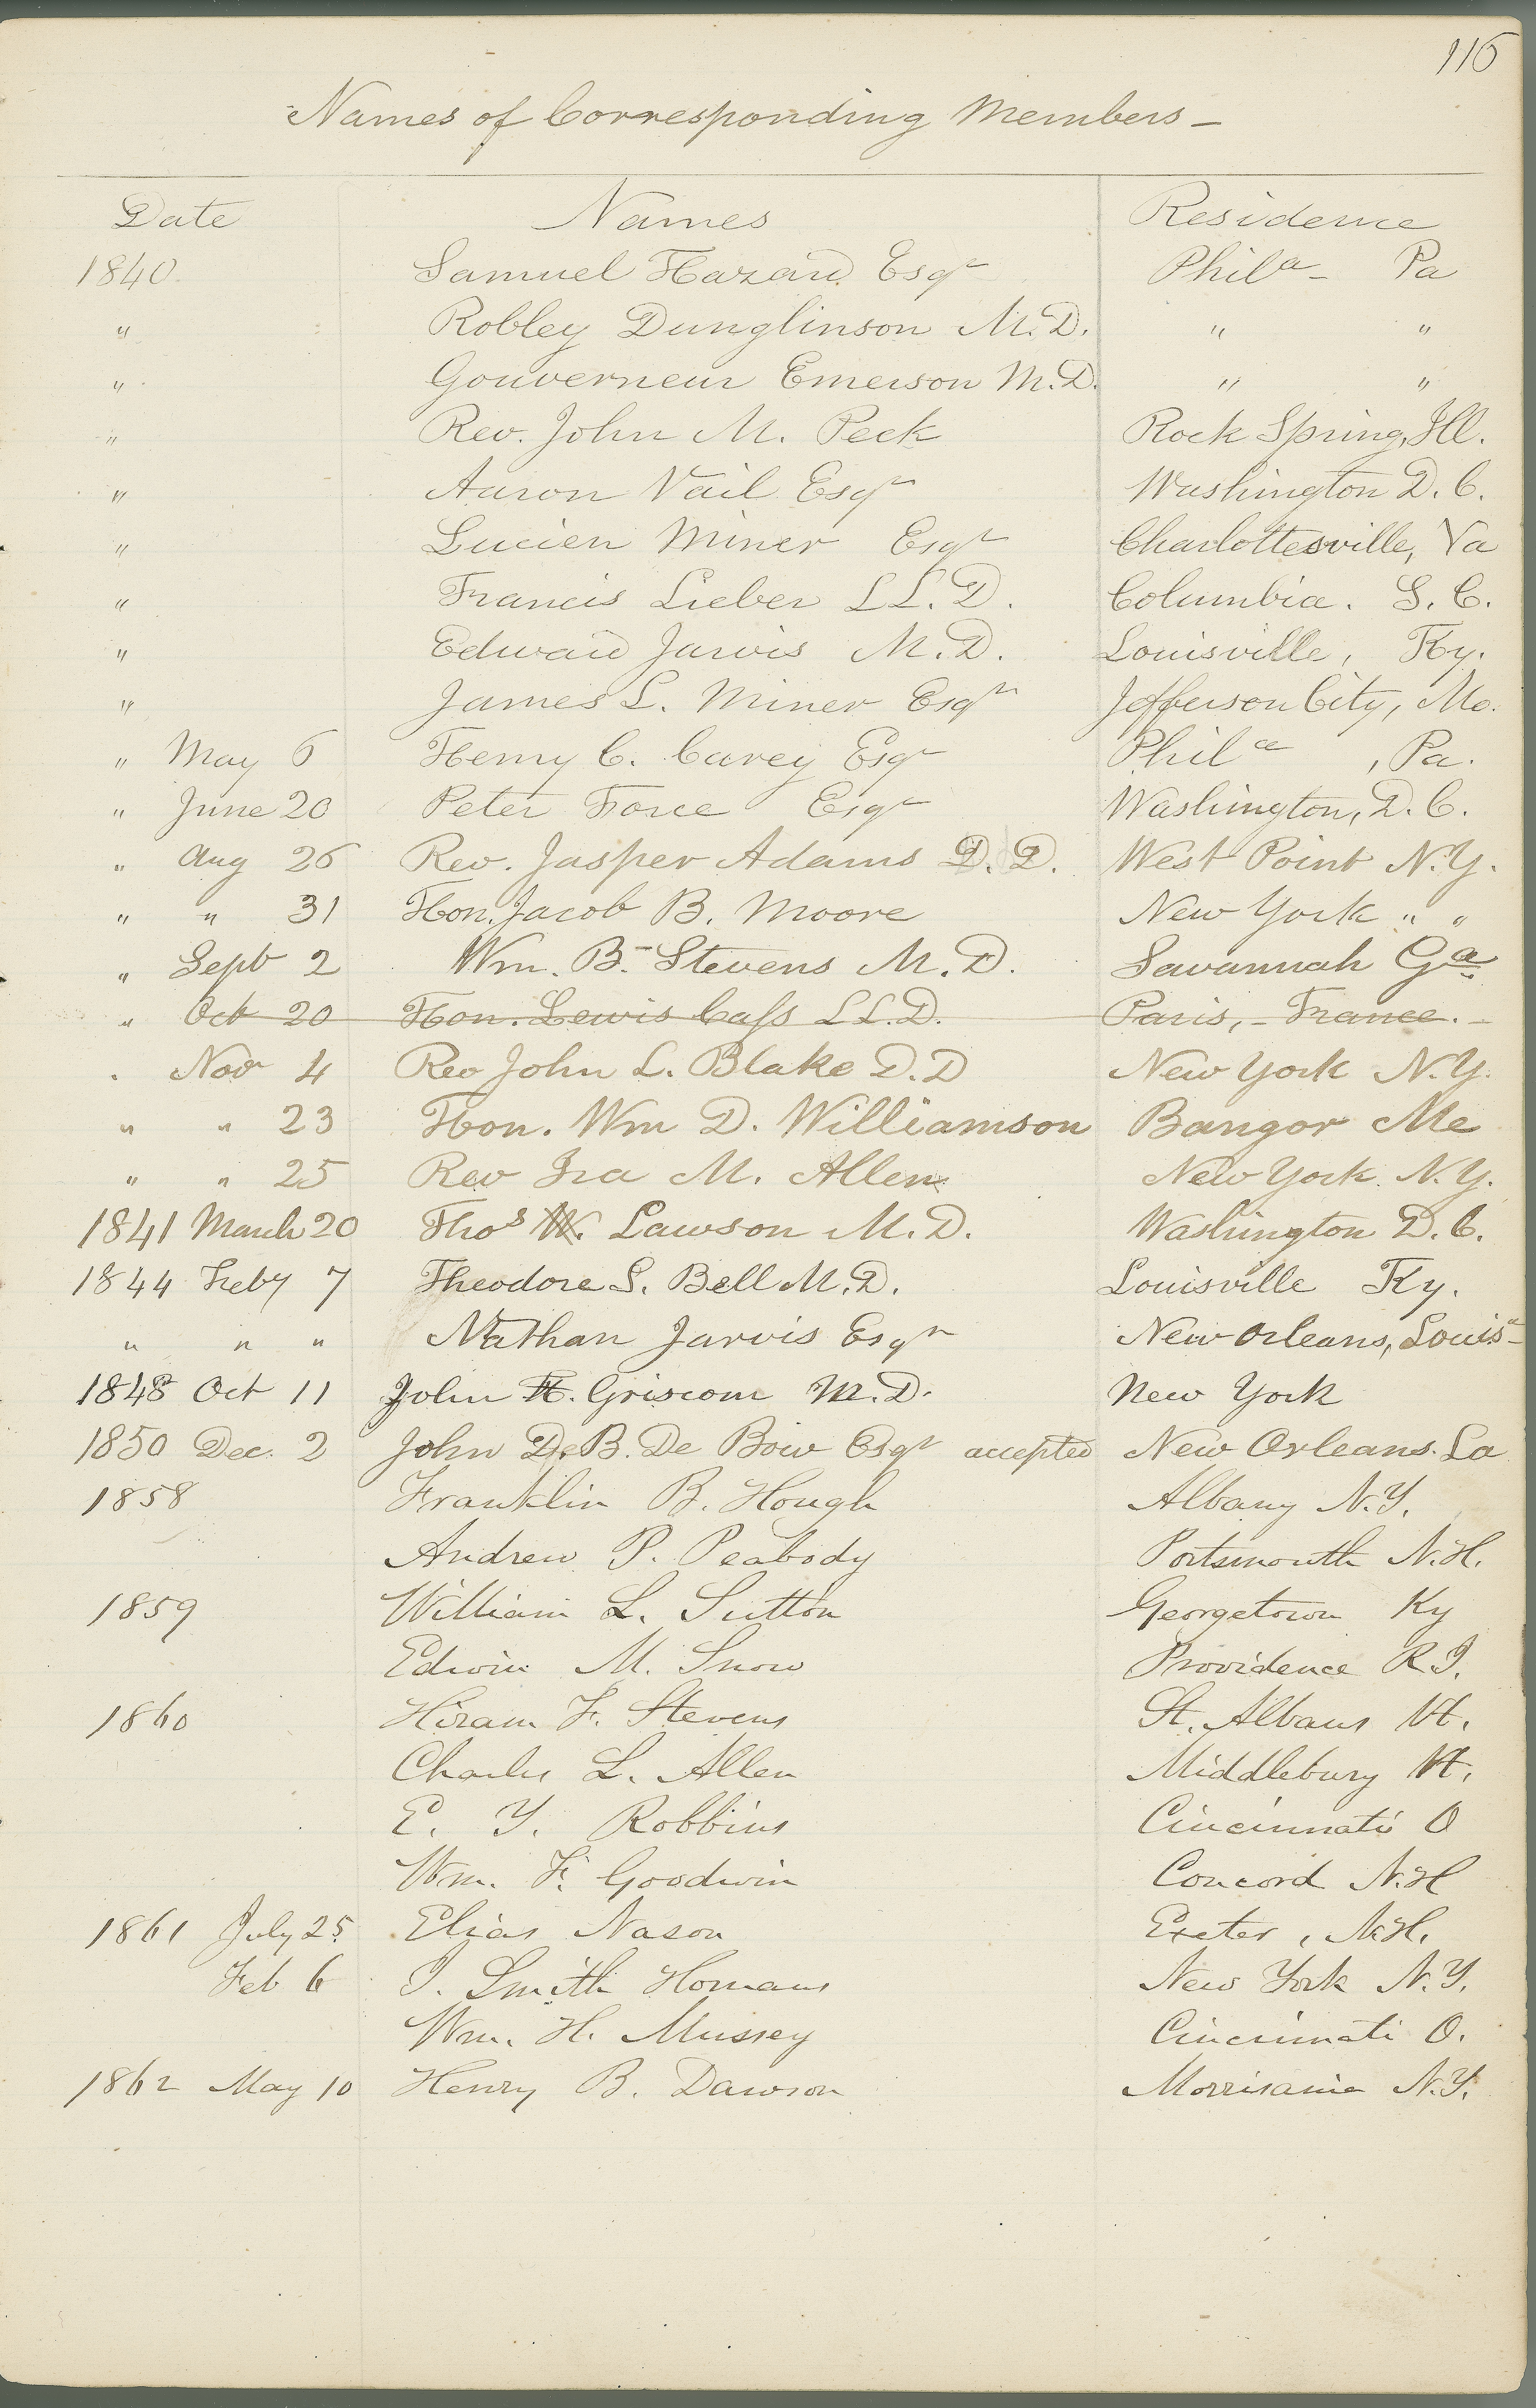 116
Names of Corresponding Members —
Date Names Residence
1840. Samuel Hazard Esqr Phila - Pa
" Robley Dunglinson M.D. " "
" Gouverneur Emerson M.D. " "
" Rev. John M. Peck Rock Spring, Ill.
" Aaron Vail Esqr Washington D.C.
" Lucien Miner Esqr Charlottesville, Va
" Francis Lieber LL.D. Columbia. S.C.
" Edward Jarvis M.D. Louisville, Ky.
" James L. Miner Esqr Jefferson City, Mo.
" May 6 Henry C. Carey Esqr Phila , Pa.
" June 20 Peter Force Esqr Washington, D.C.
" Aug 26 Rev. Jasper Adams D.D. West Point N.Y.
" " 31 Hon. Jacob B. Moore New York " "
" Sept 2 Wm. B. Stevens M.D. Savannah Ga.
" Oct 20 Hon. Lewis Cass LL.D. Paris, - France. -
" Nov 4 Rev John L. Blake D.D New York N.Y.
" " 23 Hon. Wm D. Williamson Bangor Me
" " 25 Rev Ira M. Allen New York. N.Y.
1841 March 20 Thos W. Lawson M.D. Washington D.C.
1844 Feby 7 Theodore S. Bell M.D. Louisville Ky.
" " " Nathan Jarvis Esqr New Orleans, Louisa
1848 Oct 11 John H. Griscom M.D. New York
1850 Dec. 2 John De B. De Bow Esqr accepted New Orleans. La
1858 Franklin B. Hough Albany N.Y.
Andrew P. Peabody Portsmouth N.H.
1859 William L. Sutton Georgetown Ky
Edwin M. Snow Providence R.I.
1860 Hiram F. Stevens St. Albans Vt.
Charles L. Allen Middlebury Vt.
E. Y. Robbins Cincinnati O
Wm. F. Goodwin Concord N.H
1861 July 25 Elias Nason Exeter, N.H.
Feb 6 I. Smith Homans New York N.Y.
Wm. H. Mussey Cincinnati O.
1862 May 10 Henry B. Dawson Morrisania N.Y.